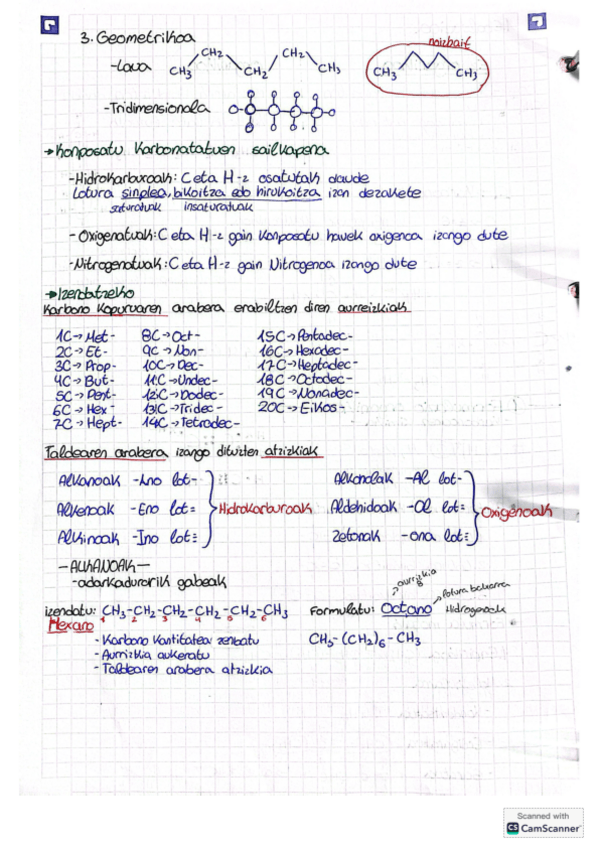 3. Geometrikoa
-Laua CH3 CH2 CH2 CH2 CH3
noizbait
CH3 CH3
-Tridimensionala
→Konposatu Karbonatatuen sailkapena
-Hidrokarburoak: C eta H-z osatutak daude
Lotura sinplea, bikoitza edo hirukoitza izan dezakete
saturatuak insaturatuak
- Oxigenatuak: C eta H-z gain Konposatu hauek oxigenoa izango dute
-Nitrogenatuak: C eta H-z gain Nitrogenoa izango dute
→Izendatzeko
Karbono Kopuruaren arabera erabiltzen diren aurreizkiak
1C→Met- 8C→Oct- 15C→Pentadec-
2C→Et- 9C→Non- 16C→Hexadec-
3C→Prop- 10C→Dec- 17C→Heptadec-
4C→But- 11C→Undec- 18C→Octadec-
5C→Pent- 12C→Dodec- 19C→Nonadec-
6C→Hex- 13C→Tridec- 20C→Eikos-
7C→Hept- 14C→Tetradec-
Taldearen arabera izango dituzten atzizkiak
Alkanoak -Ano lot- Alkoholak -Al lot-
Alkenoak -Eno lot= Hidrokarburoak Aldehidoak -Ol lot= Oxigenoak
Alkinoak -Ino lot≡ Zetonak -ona lot≡
-ALKANOAK-
-adarkadurarik gabeak
aurrizkia
lotura bakarra
izendatu: CH3-CH2-CH2-CH2-CH2-CH3 Formulatu: Octano Hidrogenoak
1 2 3 4 5 6
Hexano
- Karbono Kantitatea zenbatu CH3-(CH2)6-CH3
- Aurrizkia aukeratu
- Taldearen arabera atzizkia
Scanned with
CS CamScanner